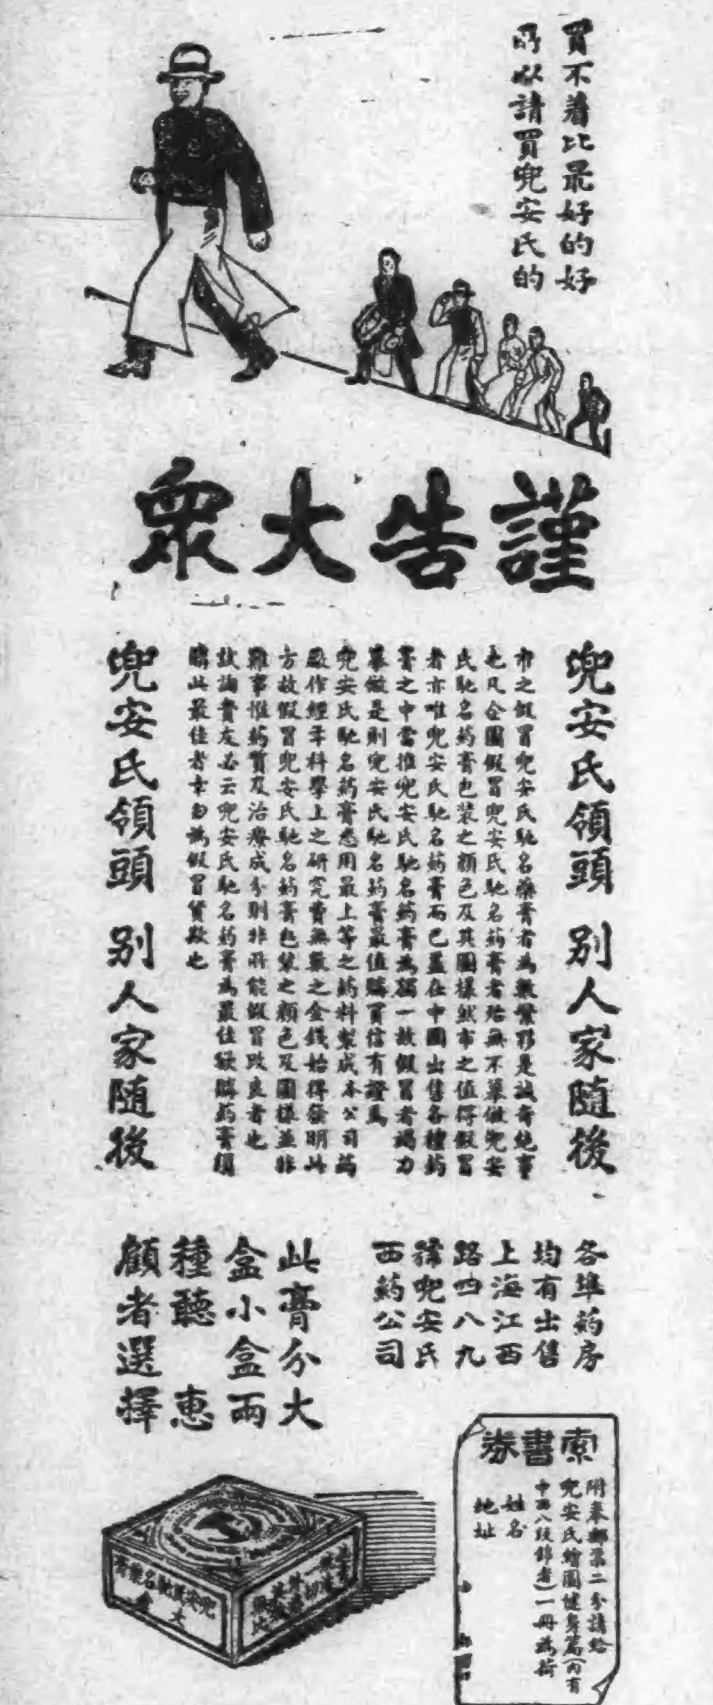 買不着比最好的好
所以請買兜安氏的
謹告大眾
兜安氏領頭 別人家隨後
市之假冒兜安氏馳名藥膏者為數繁夥是誠奇絕事
也凡企圖假冒兜安氏馳名药膏者殆無不摹倣兜安
氏馳名药膏包裝之顏色及其圖樣然市之值得假冒
者亦唯兜安氏馳名药膏而已蓋在中國出售各種药
膏之中當推兜安氏馳名药膏為獨一故假冒者竭力
摹倣是則兜安氏馳名药膏最值購買信有證焉
兜安氏馳名药膏悉用最上等之药料製成本公司药
廠作經年科學上之研究費無數之金錢始得發明此
方故假冒兜安氏馳名药膏包裝之顏色及圖樣並非
難事惟药質及治療成分則非所能假冒改良者也
試詢貴友必云兜安氏馳名药膏為最佳欲購药膏須
購此最佳者幸勿為假冒貨欺也
兜安氏領頭 別人家隨後
各埠药房
均有出售
上海江西
路四八九
號兜安氏
西药公司
此膏分大
盒小盒兩
種聽 惠
顧者選擇
索書券
附奉郵票二分請給
兜安氏繪圖健身篇(內有
中西八段錦者)一冊為荷
姓名
地址
兜安氏馳名藥膏
大盒